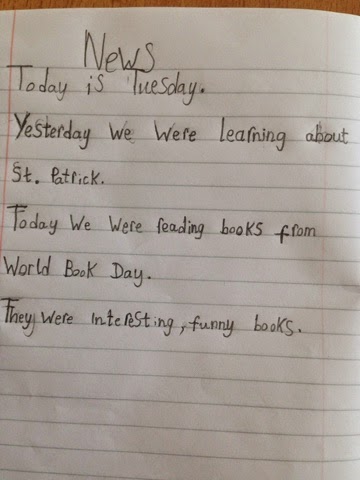 News
Today is Tuesday.
Yesterday we were learning about
St. Patrick.
Today we were reading books from
World Book Day.
They were interesting, funny books.